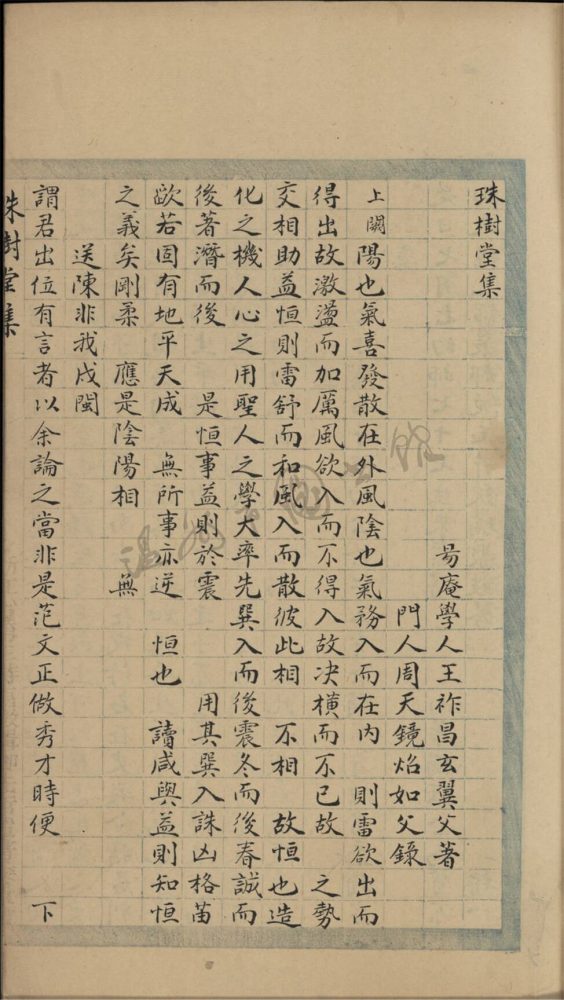 珠樹堂集
昜庵學人王祚昌玄翼父著
門人周天鏡炤如父錄
上闕陽也氣喜發散在外風陰也氣務入而在內　則雷欲出而
得出故激盪而加厲風欲入而不得入故决橫而不已故　之勢
交相助益恒則雷舒而和風入而散彼此相　不相　故恒也造
化之機人心之用聖人之學大率先巽入而後震冬而後春誠而
後著潛而後　是恒事益則於震　用其巽入誅凶格苗
欿若固有地平天成　無所事亦逆　恒也　讀咸與益則知恒
之義矣剛柔　應是陰陽相　無
送陳非我戍閩
謂君出位有言者以余論之當非是范文正做秀才時便　下
珠樹堂集